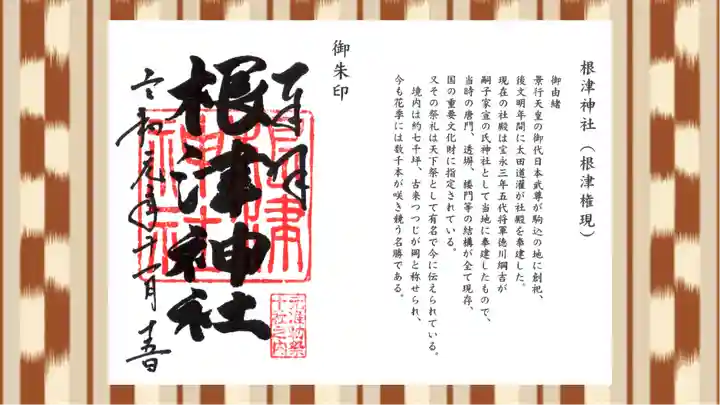 根津神社（根津権現）
御由緒
景行天皇の御代日本武尊が駒込の地に創祀、
後文明年間に太田道灌が社殿を奉建した。
現在の社殿は宝永三年五代将軍徳川綱吉が
嗣子家宣の氏神社として当地に奉建したもので、
当時の唐門、透塀、楼門等の結構が全て現存、
国の重要文化財に指定されている。
又その祭礼は天下祭として有名で今に伝えられている。
境内は約七千坪、古来つつじが岡と称せられ、
今も花季には数千本が咲き競う名勝である。
御朱印
奉拝
根津神社
令和元年十一月十五日
根津神社
元准勅祭
十社之内